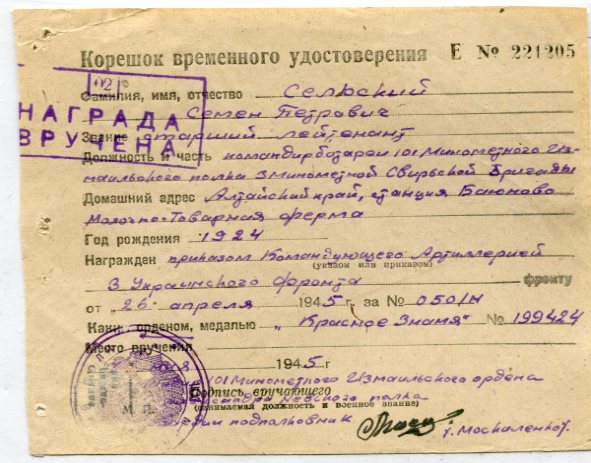 Корешок временного удостоверения Е № 221205
02
НАГРАДА
ВРУЧЕНА
Фамилия, имя, отчество Сельский
Семен Петрович
Звание старший лейтенант
Должность и часть командир батареи 101 Минометного Из-
маильского полка 3 Минометной Свирьской бригады
Домашний адрес Алтайский край, станция Баюново
Молочно-Товарная ферма
Год рождения 1924
Награжден приказом Командующего Артиллерией
(указом или приказом)
3 Украинского Фронта фронту
от „26" апреля 1945 г. за № 050/н
Каким орденом, медалью „Красное Знамя" № 199424
Место вручения
1945 г
101 Минометного Измаильского ордена
Подпись вручающего
Невского полка
(занимаемая должность и военное звание)
подполковник
М. П.
/. Москаленко/.